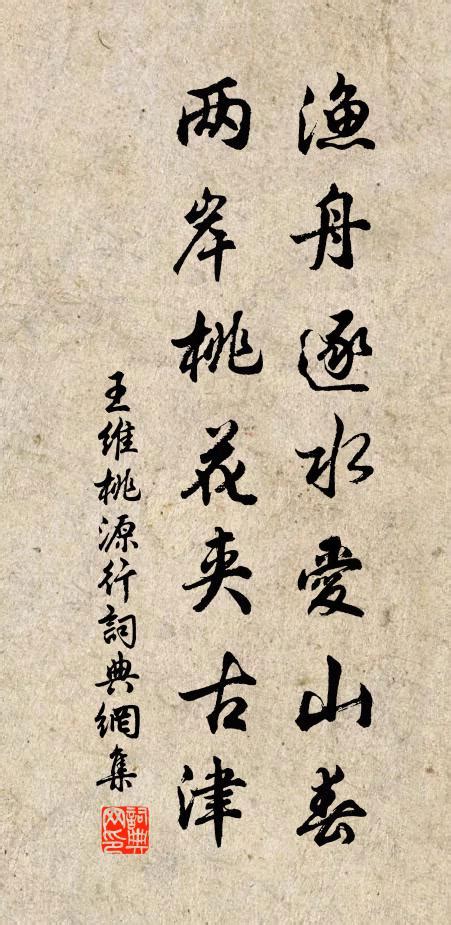 渔舟逐水爱山春
两岸桃花夹古津
王维桃源行詞典網集
詞典
网印